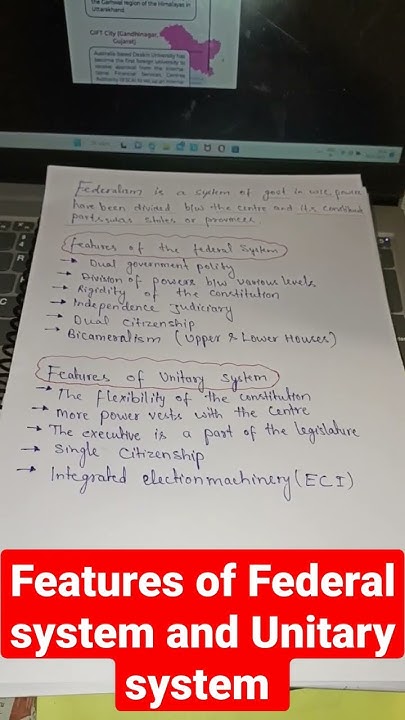 the Garhwal region of the Himalayas in
Uttarakhand.
GIFT City (Gandhinagar,
Gujarat)
Australia-based Deakin University has
become the first foreign university to
receive approval from the Interna-
tional Financial Services Centres
Authority (IFSCA) to set up an
Federalism is a system of govt in wic power
have been divided b/w the centre and its
parts states or provinces.
Features of the federal system
→ Dual government polity
→ Division of powers b/w various levels
→ Rigidity of the constitution
→ Independence Judiciary
→ Dual Citizenship
→ Bicameralism (Upper & Lower Houses)
Features of Unitary System
→ The flexibility of the constitution
→ more power vests with the Centre
→ The executive is a part of the legislature
→ Single Citizenship
→ Integrated election machinery (ECI)
Features of Federal
system and Unitary
system